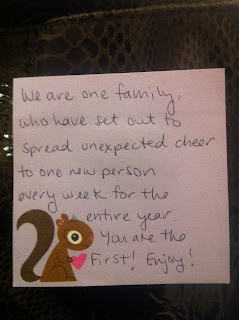 We are one family,
who have set out to
spread unexpected cheer
to one new person
every week for the
entire year.
You are the
First! Enjoy!